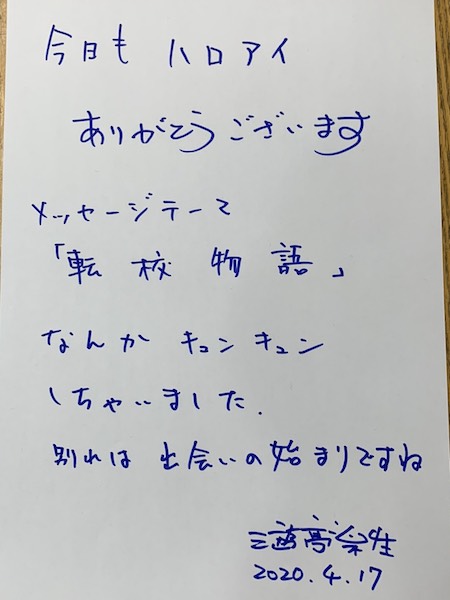 今日も ハロアイ
ありがとうございます
メッセージテーマ
「転校物語」
なんか キュンキュン
しちゃいました.
別れは 出会いの始まりですね
三遊亭楽生
2020.4.17